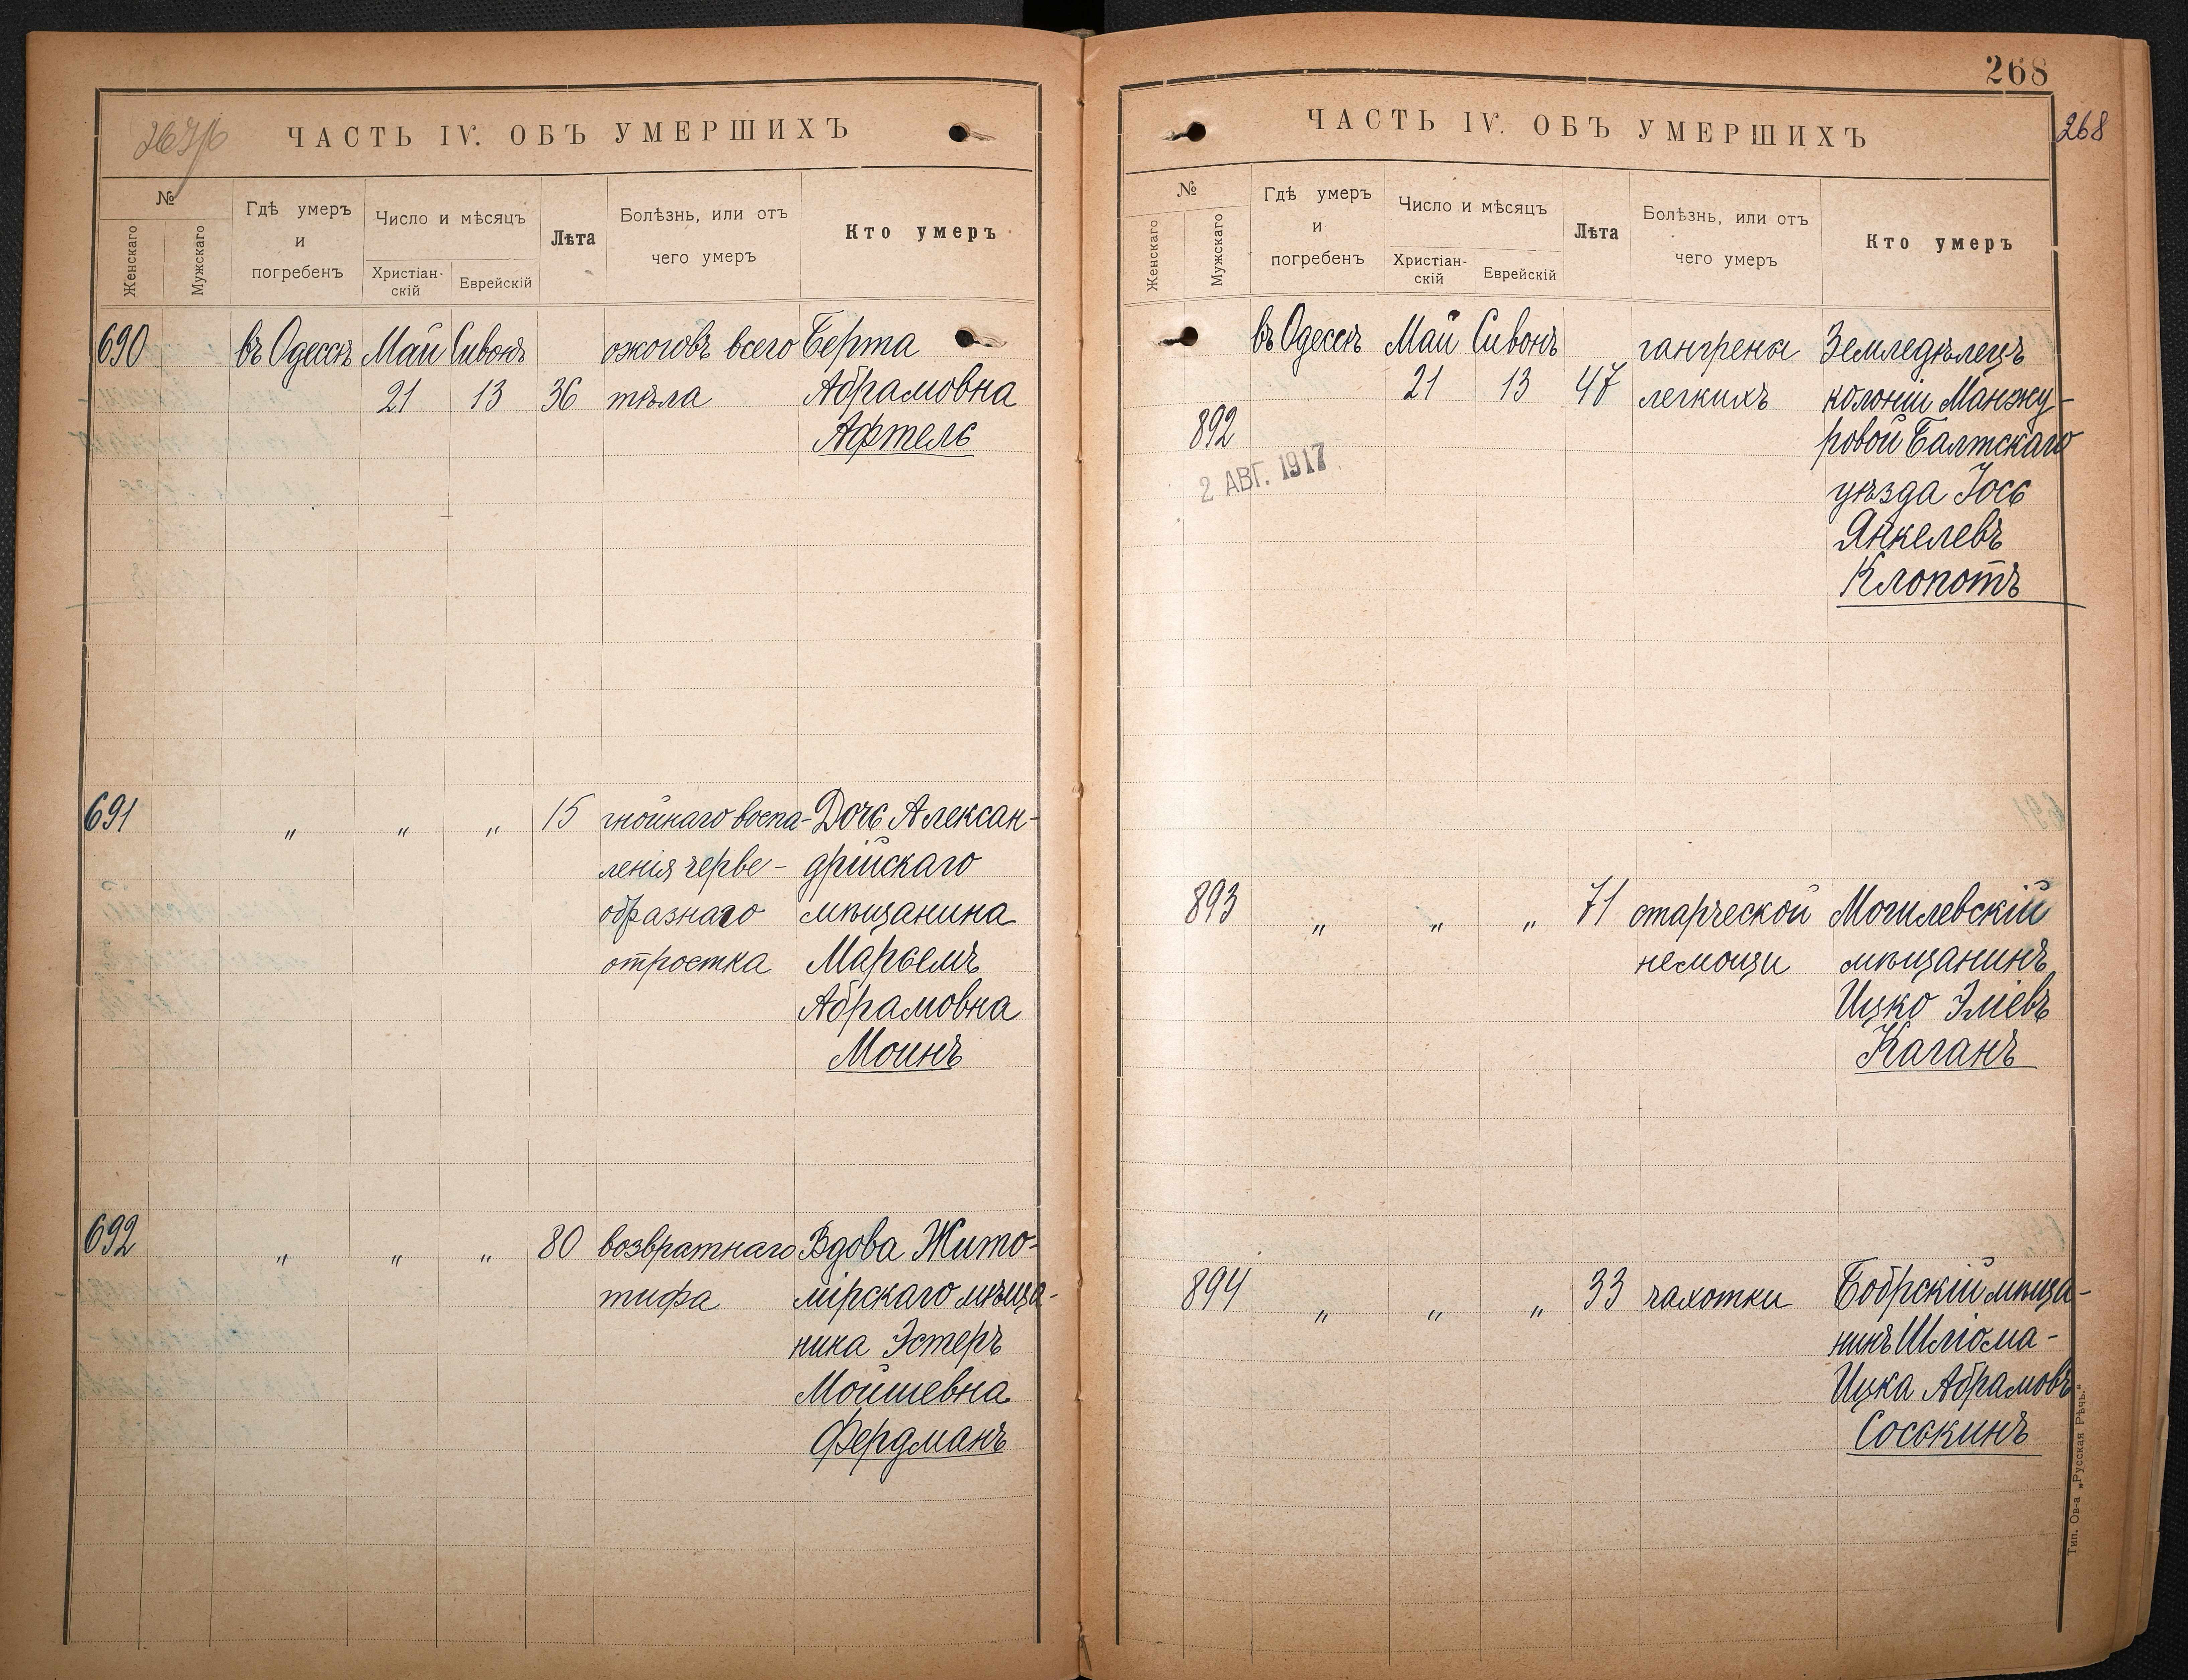 267/б
ЧАСТЬ IV. ОБЪ УМЕРШИХЪ
№
Женскаго
Мужскаго
Гдѣ умеръ
и
погребенъ
Число и мѣсяцъ
Христіан-
скій
Еврейскій
Лѣта
Болѣзнь, или отъ
чего умеръ
Кто умеръ
690 въ Одессѣ Май Сивонъ ожоговъ всего Берта
21 13 36 тѣла Абрамовна
Афтель
691 „ „ „ 15 гнойнаго воспа- Дочь Алексан-
ленія черве- дрійскаго
образнаго мѣщанина
отростка Марьемъ
Абрамовна
Моинъ
692 „ „ „ 80 возвратнаго Вдова Жито-
тифа мірскаго мѣща-
ника Эстеръ
Мойшевна
Фердманъ
268
268
ЧАСТЬ IV. ОБЪ УМЕРШИХЪ
№
Женскаго
Мужскаго
Гдѣ умеръ
и
погребенъ
Число и мѣсяцъ
Христіан-
скій
Еврейскій
Лѣта
Болѣзнь, или отъ
чего умеръ
Кто умеръ
въ Одессѣ Май Сивонъ гангрены Земледѣлецъ
21 13 47 легкихъ колоніи Манжу-
892 ровой Балтскаго
2 АВГ. 1917
уѣзда Іось
Янкелевъ
Клопотъ
893 „ „ „ 71 старческой Могилевскій
немощи мѣщанинъ
Ицко Эліевъ
Каганъ
894 „ „ „ 33 чахотки Бобрскій мѣща-
нинъ Шліома-
Ицка Абрамовъ
Соськинъ
Тип. Ов-а „Русская Рѣчь.“